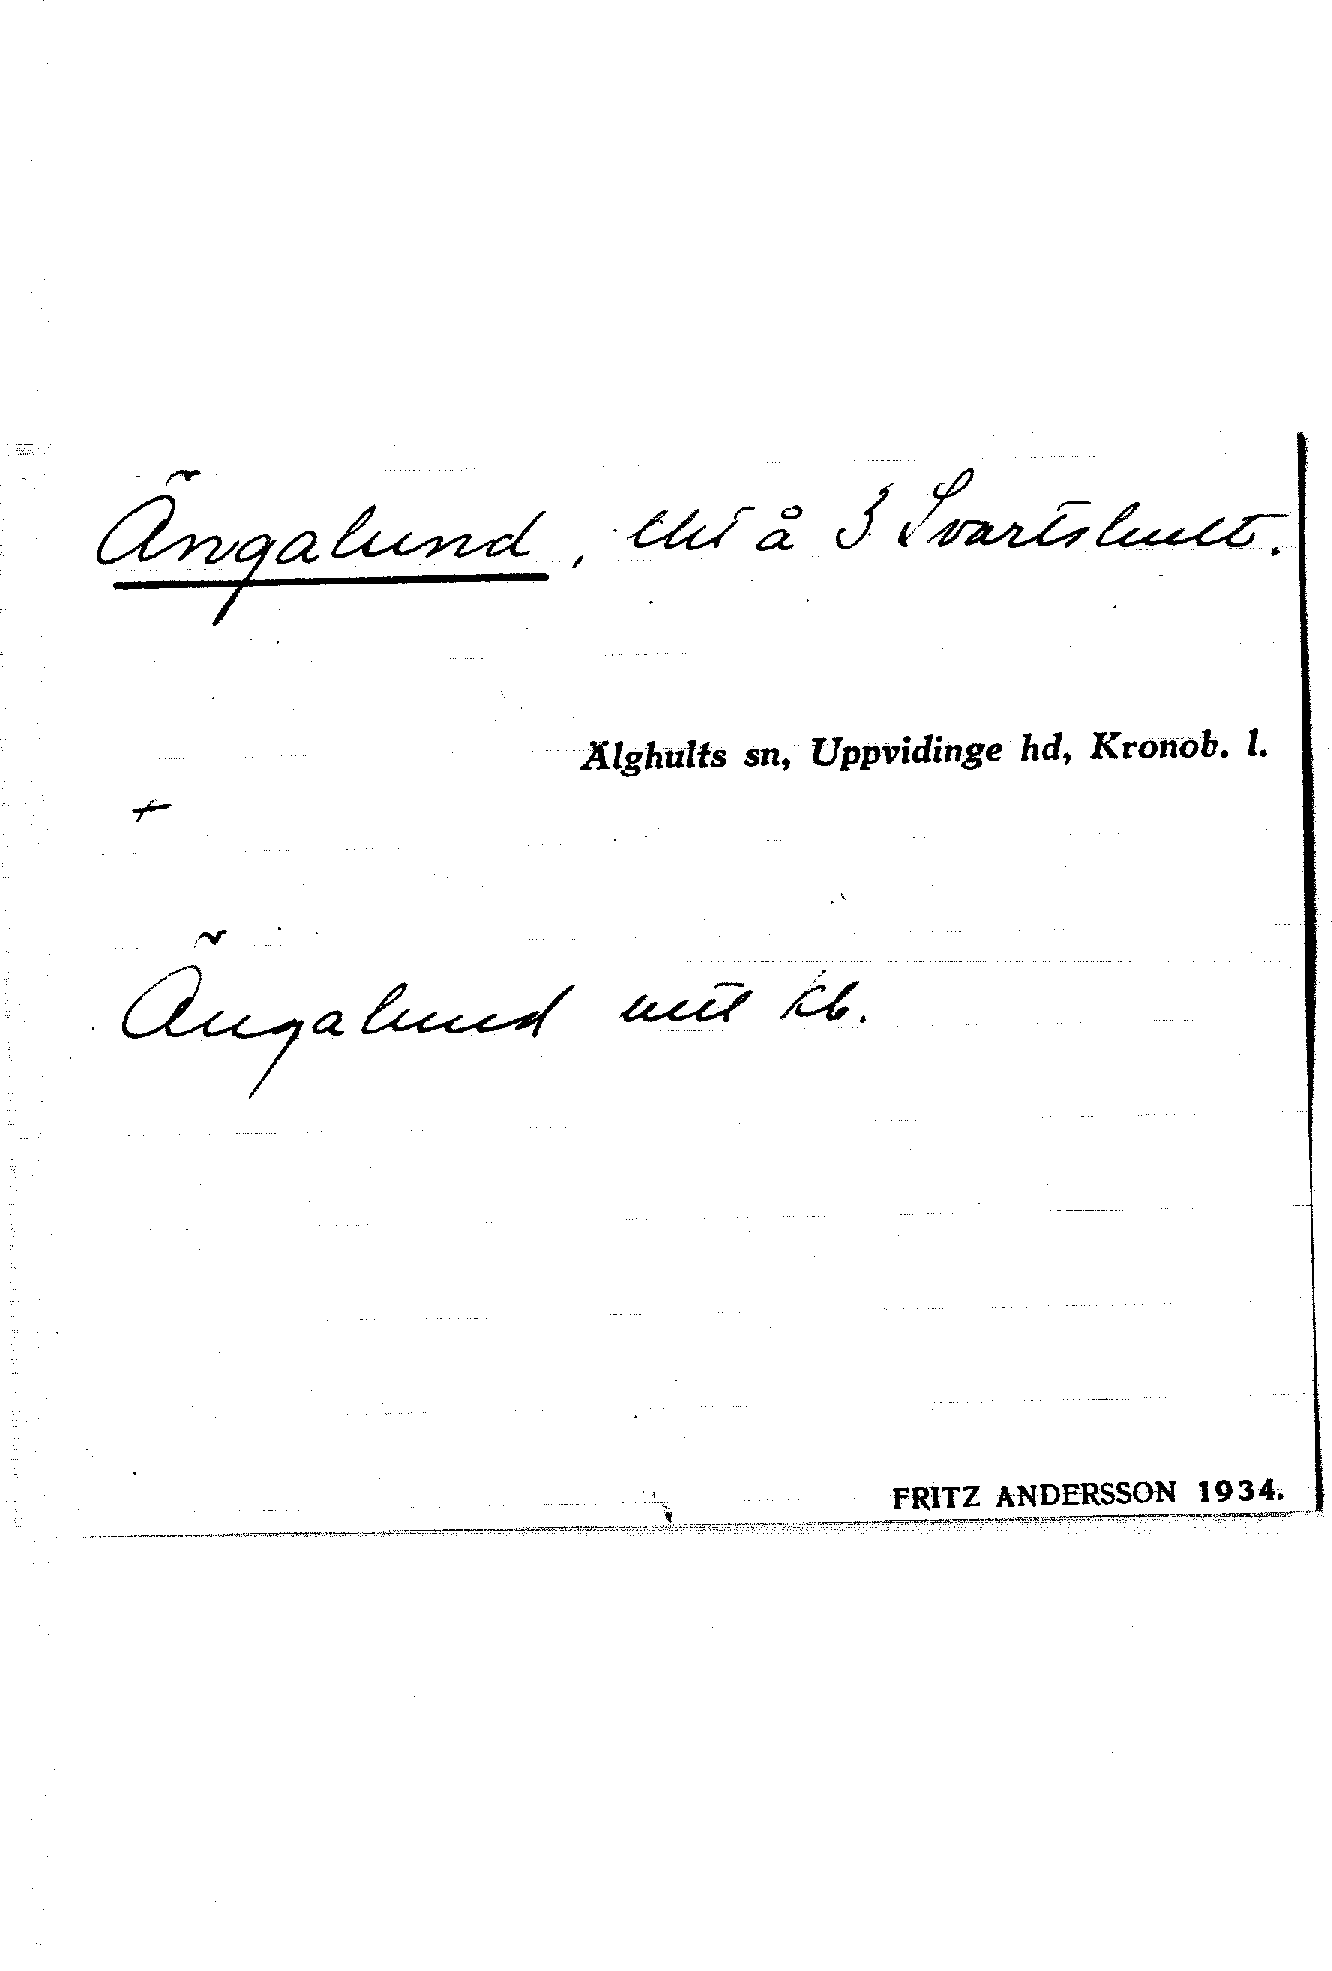 Ängalund, lht å 3 Svartshult.
Älghults sn, Uppvidinge hd, Kronob. l.
+
Ängalund utt kb.
FRITZ ANDERSSON 1934.